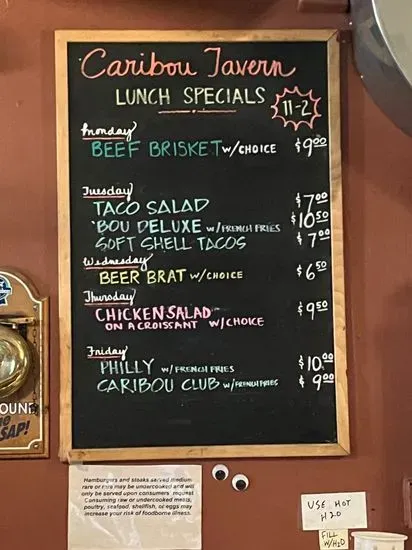 Caribou Tavern
LUNCH SPECIALS
11-2
Monday
BEEF BRISKET W/CHOICE $9.00
Tuesday
TACO SALAD $7.00
'BOU DELUXE W/FRENCH FRIES $10.50
SOFT SHELL TACOS $7.00
Wednesday
BEER BRAT W/CHOICE $6.50
Thursday
CHICKEN SALAD $9.50
ON A CROISSANT W/CHOICE
Friday
PHILLY W/FRENCH FRIES $10.00
CARIBOU CLUB W/FRENCH FRIES $9.00
OUN
SAP!
Hamburgers and steaks served medium
rare or rare may be undercooked and will
only be served upon consumers request
Consuming raw or undercooked meats,
poultry, seafood, shellfish, or eggs may
increase your risk of foodborne illness.
USE HOT
H2O
FILL
W/H2O